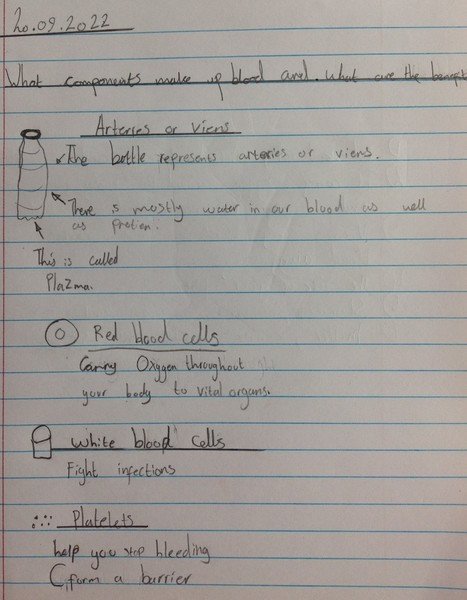 20.09.2022
What components make up blood and. What are the benefit
Arteries or Viens
The bottle represents arteries or viens.
There is mostly water in our blood as well
as protien.
This is called
Plazma.
Red blood cells
Carry Oxygen throughout
your body to vital organs.
White blood cells
Fight infections
Platelets
help you stop bleeding
form a barrier